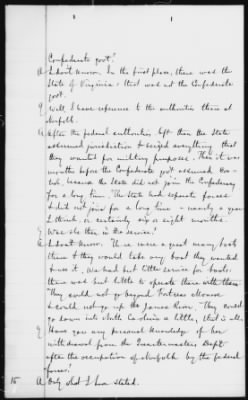 Confederate govt?
A I dont know. In the first place, there was the
State of Virginia & that was not the Confederate
govt.
Q Well I have reference to the authorities there at
Norfolk.
A After the federal authorities left then the State
assumed jurisdiction & seized everything that
they wanted for military purposes. Then it was
months before the Confederate govt assumed con-
trol, because the State did not join the Confederacy
for a long time. The State had separate forces
& did not join for a long time - nearly a year
I think, or certainly six or eight months.
Q Was she then in the service?
A I dont know. There were a great many boats
there & they would take any boat they wanted
to use it. We had but little service for boats.
there was but little to operate there with them
They could not go beyond Fortress Monroe
& could not go up the James River. They could
go down into North Carolina a little, that is all.
Q Have you any personal knowledge of her
withdrawal from the Quartermasters Dept
after the occupation of Norfolk by the federal
forces?
A Only what I have stated.
15